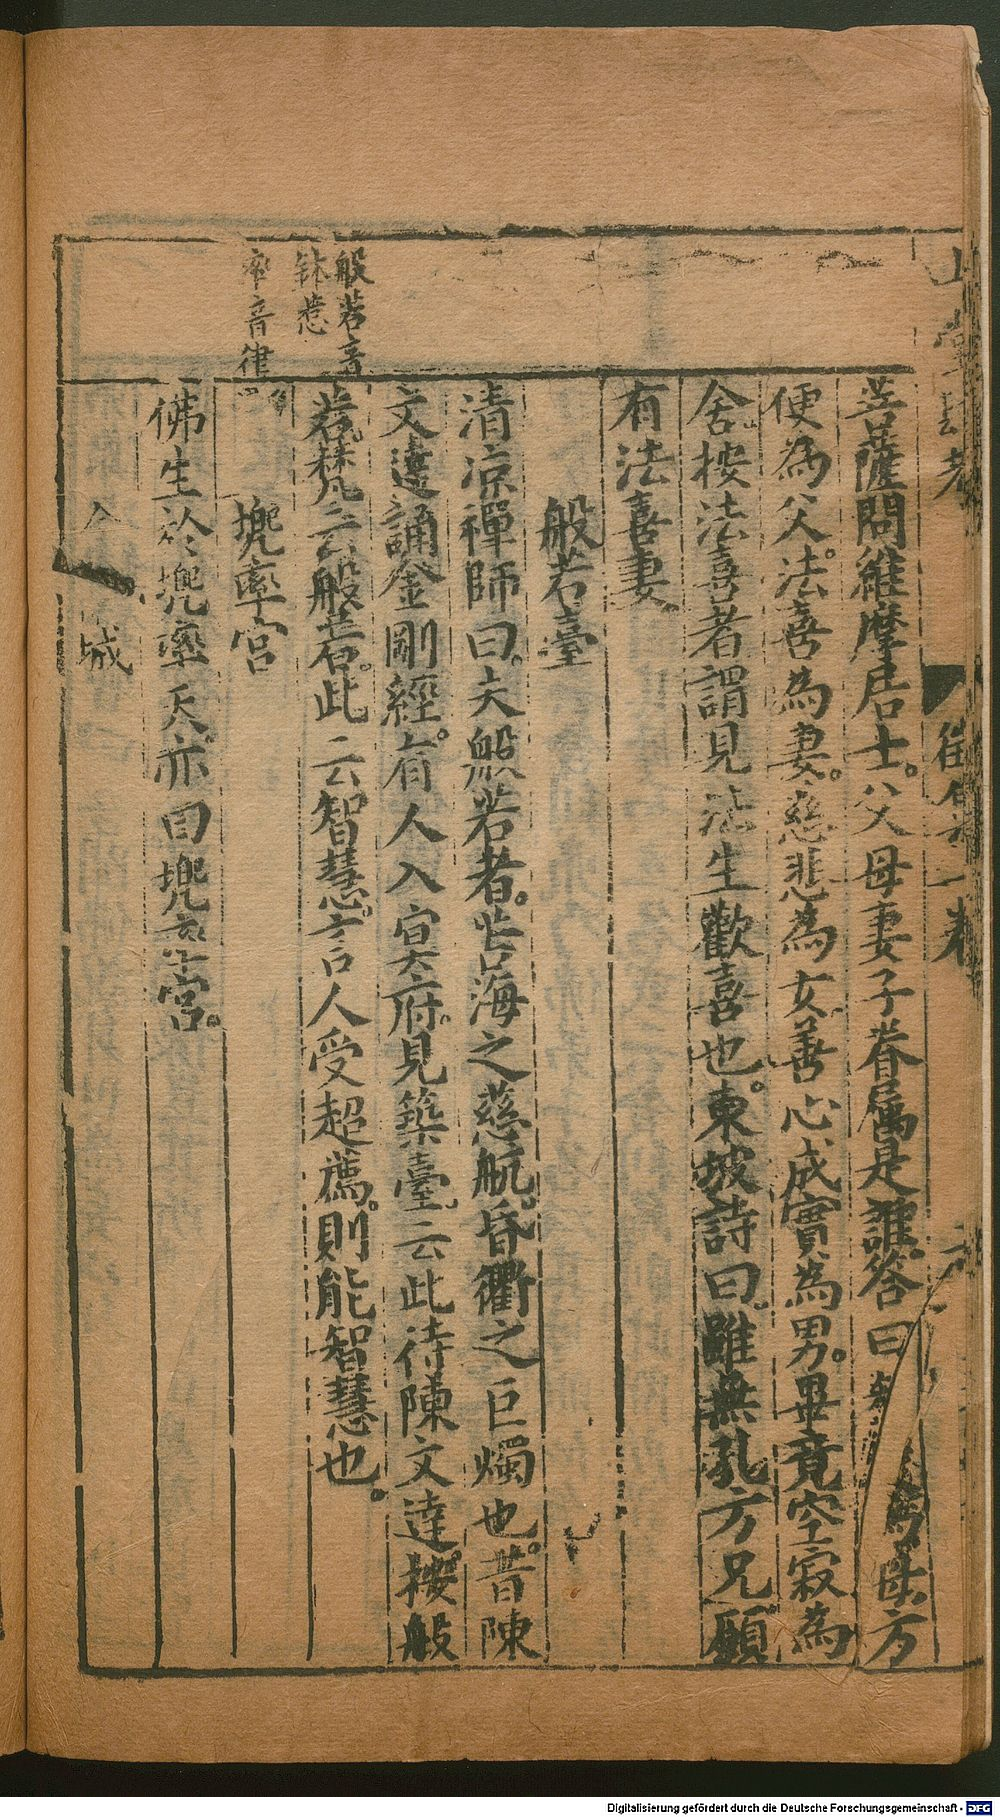 菩薩問維摩居士。父母妻子眷属是誰答曰為母方
便為父。法喜為妻。慈悲為女。善心成實為男。畢竟空寂為
舍。按法喜者謂見法生歡喜也。東坡詩曰。雖無孔方兄願
有法喜妻
般若臺
清凉禪師曰。夫般若者。苦海之慈航。昏衢之巨燭也。昔陳
文達誦金剛經。有人入冥府。見築臺。云此待陳文達。按般
若。梵云般若。此云智慧。言人受超薦。則能智慧也。
兜率宮
佛生於兜率天亦曰兜率宮。
城
般若音
鉢惹
率音律
Digitalisierung gefördert durch die Deutsche Forschungsgemeinschaft - DFG